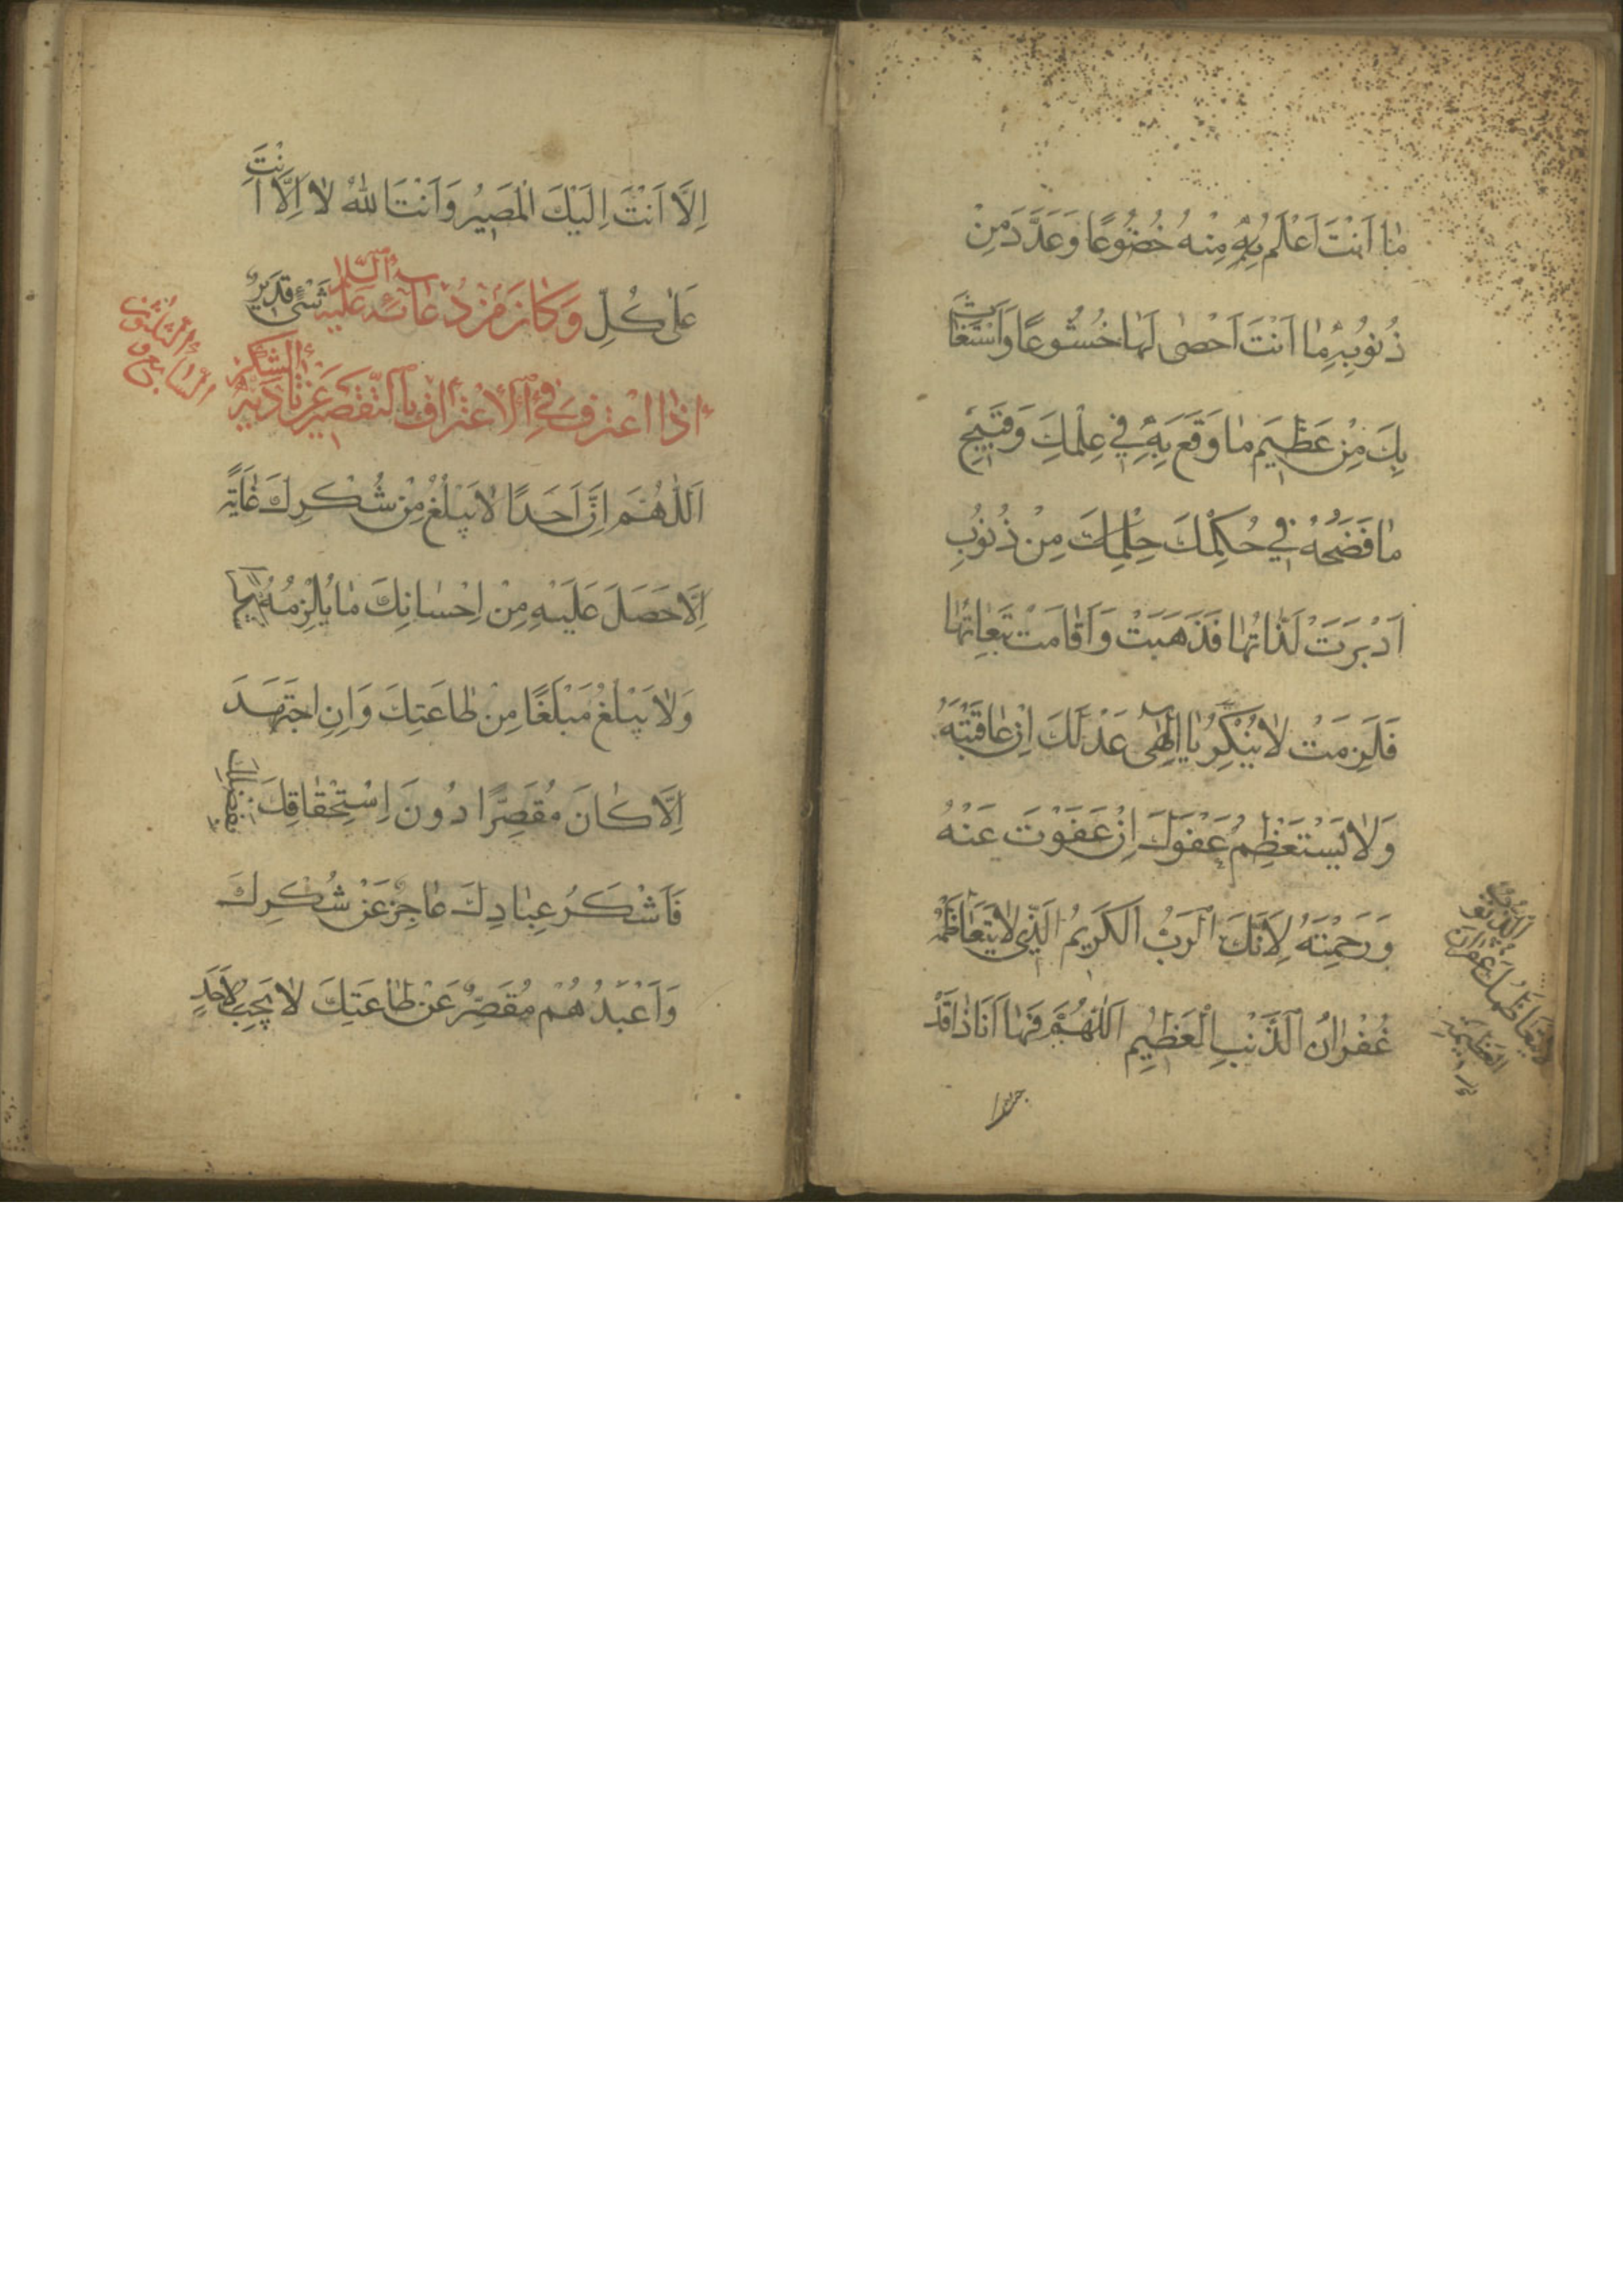 مٰا اَنْتَ اَعْلَمُ بِهِ مِنْهُ خُضُوعًا وَعَدَّدَ مِنْ
ذُنُوبِهِ مٰا اَنْتَ اَحْصٰى لَهٰا خُشُوعًا وَاسْتَغٰاثَ
بِكَ مِنْ عَظِيمِ مٰا وَقَعَ بِهِ فِي عِلْمِكَ وَقَبِيحِ
مٰا فَضَحَهُ فِي حُكْمِكَ مِنْ ذُنُوبٍ
اَدْبَرَتْ لَذّٰاتُهٰا فَذَهَبَتْ وَاَقٰامَتْ تَبِعٰاتُهٰا
فَلَزِمَتْ لاٰ يُنْكِرُ يٰا اِلٰهِي عَدْلَكَ اِنْ عٰاقَبْتَهُ
وَلاٰ يَسْتَعْظِمُ عَفْوَكَ اِنْ عَفَوْتَ عَنْهُ
وَرَحِمْتَهُ لِاَنَّكَ الرَّبُّ الْكَرِيمُ الَّذِي لاٰ يَتَعٰاظَمُهُ
غُفْرٰانُ الذَّنْبِ الْعَظِيمِ اَللّٰهُمَّ فَهٰا اَنَا ذٰا قَدْ
لاٰ يَتَعٰاظَمُكَ غُفْرٰانُ
الذُّنُوبِ
الْعَظِيمَةِ
جئتك
اِلاَّ اَنْتَ اِلَيْكَ الْمَصِيرُ وَاَنْتَ اللّٰهُ لاٰ اِلاَّ اَنْتَ
عَلٰى كُلِّ شَيْءٍ قَدِيرٌ وَكٰانَ مِنْ دُعٰائِهِ عَلَيْهِ السَّلٰمُ
اِذَا اعْتَرَفَ فِي الْاِعْتِرٰافِ بِالتَّقْصِيرِ عَنْ تَأْدِيَةِ الشُّكْرِ
اَللّٰهُمَّ اِنَّ اَحَدًا لاٰ يَبْلُغُ مِنْ شُكْرِكَ غٰايَةً
اِلاَّ حَصَلَ عَلَيْهِ مِنْ اِحْسٰانِكَ مٰا يُلْزِمُهُ
وَلاٰ يَبْلُغُ مَبْلَغًا مِنْ طٰاعَتِكَ وَاِنِ اجْتَهَدَ
اِلاَّ كٰانَ مُقَصِّرًا دُونَ اِسْتِحْقٰاقِكَ بِفَضْلِكَ
فَاَشْكَرُ عِبٰادِكَ عٰاجِزٌ عَنْ شُكْرِكَ
وَاَعْبَدُهُمْ مُقَصِّرٌ عَنْ طٰاعَتِكَ لاٰ يَجِبُ لِاَحَدٍ